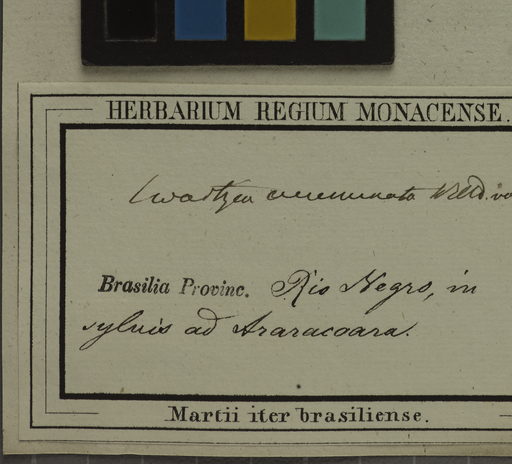 HERBARIUM REGIUM MONACENSE.
Swartzia acuminata Willd. va
Brasilia Provinc. Rio Negro, in
sylvis ad Araracoara.
Martii iter brasiliense.